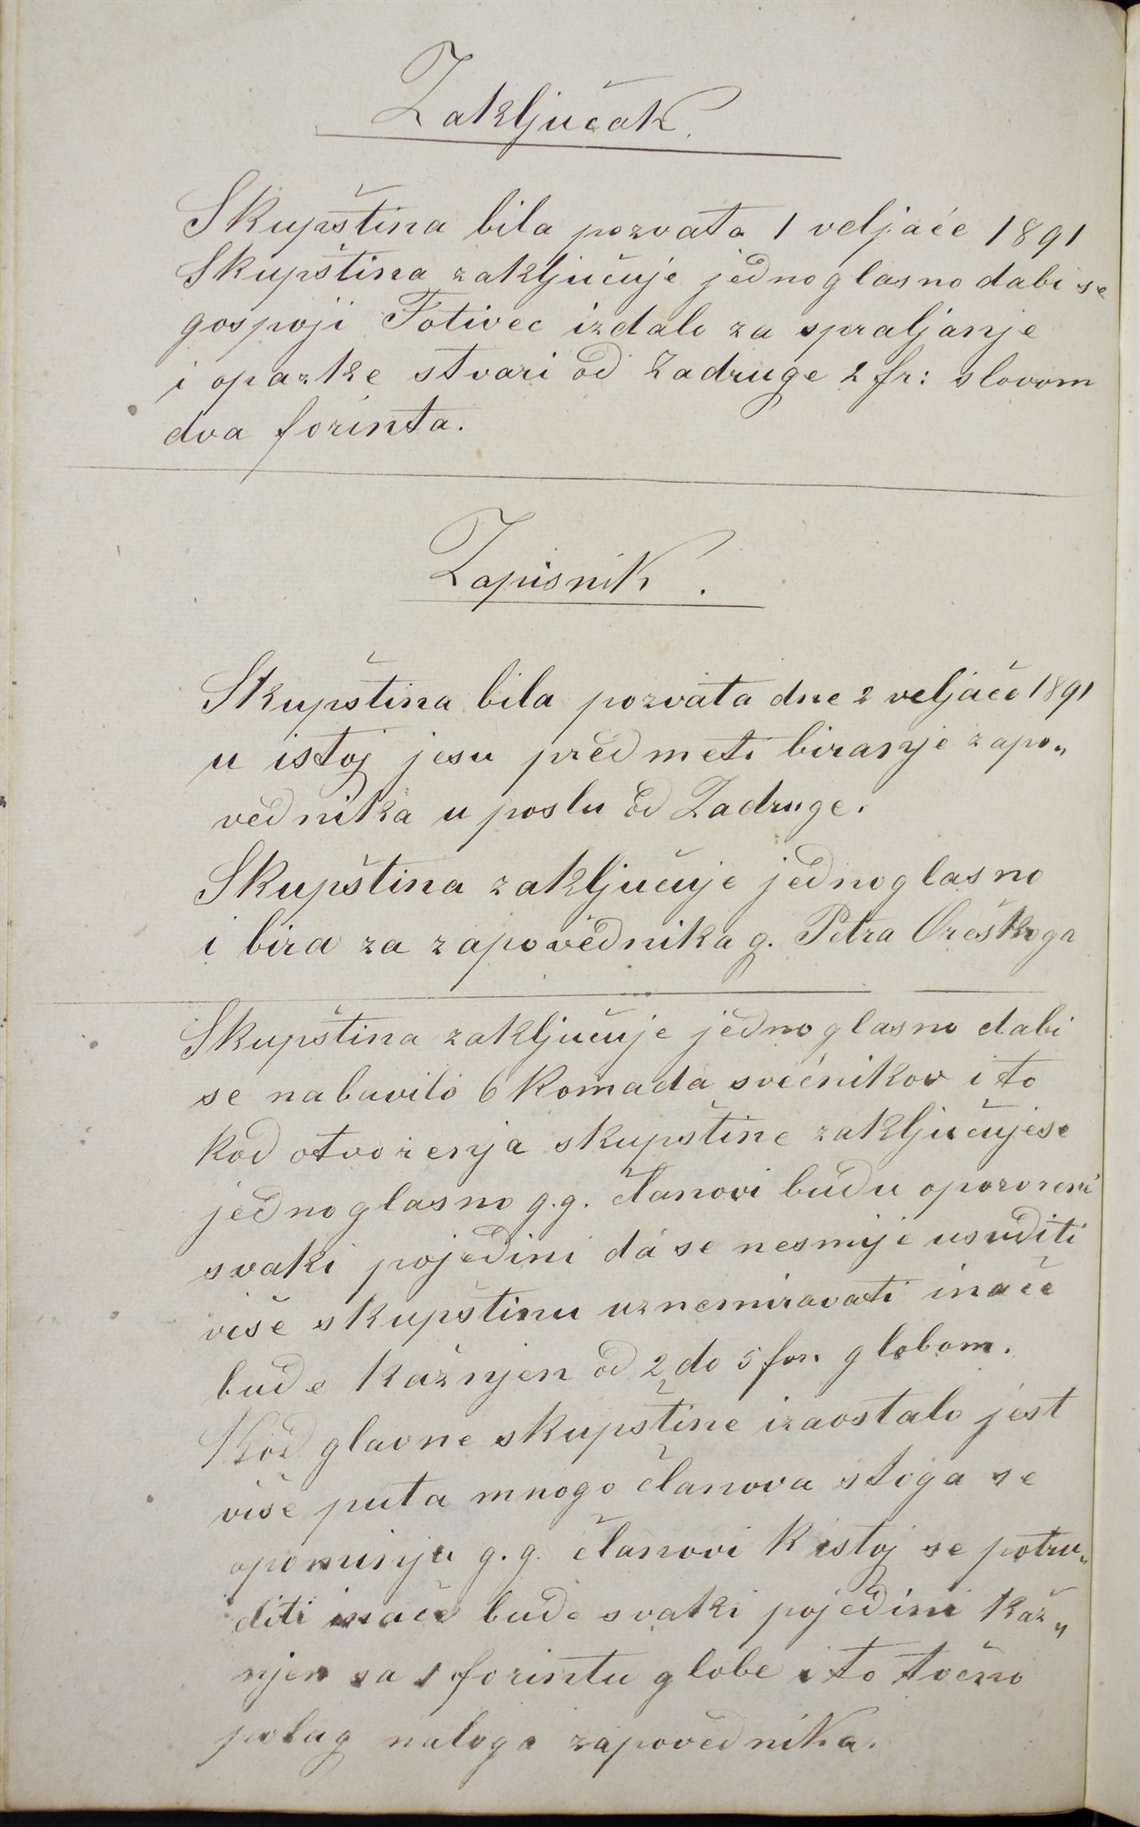 Zaključak.
Skupština bila pozvata 1 veljače 1891
Skupština zaključuje jednoglasno dabi se
gospoji Fotivec izdalo za spraljanje
i opazke stvari od Zadruge 2 fr: slovom
dva forinta.
Zapisnik.
Skupština bila pozvata dne 2 veljače 1891
u istoj jesu predmeti biranje zapo„
vednika u poslu od Zadruge.
Skupština zaključuje jednoglasno
i bira za zapovednika g. Petra Oreškoga
Skupština zaključuje jednoglasno dabi
se nabavilo 6 komada svećnikov i to
kod otvorenja skupštine zaključujese
jednoglasno g.g. članovi budu opozoreni
svaki pojedini da se nesmije usuditi
više skupštinu uznemiravati inače
bude kažnjen od 2 do 5 for. globom.
Kod glavne skupštine izaostalo jest
više puta mnogo članova stoga se
opominju g.g. članovi k istoj se potru„
diti inače bude svaki pojedini kaž„
njen sa 1 forintu globe i to točno
polag naloga zapovednika.